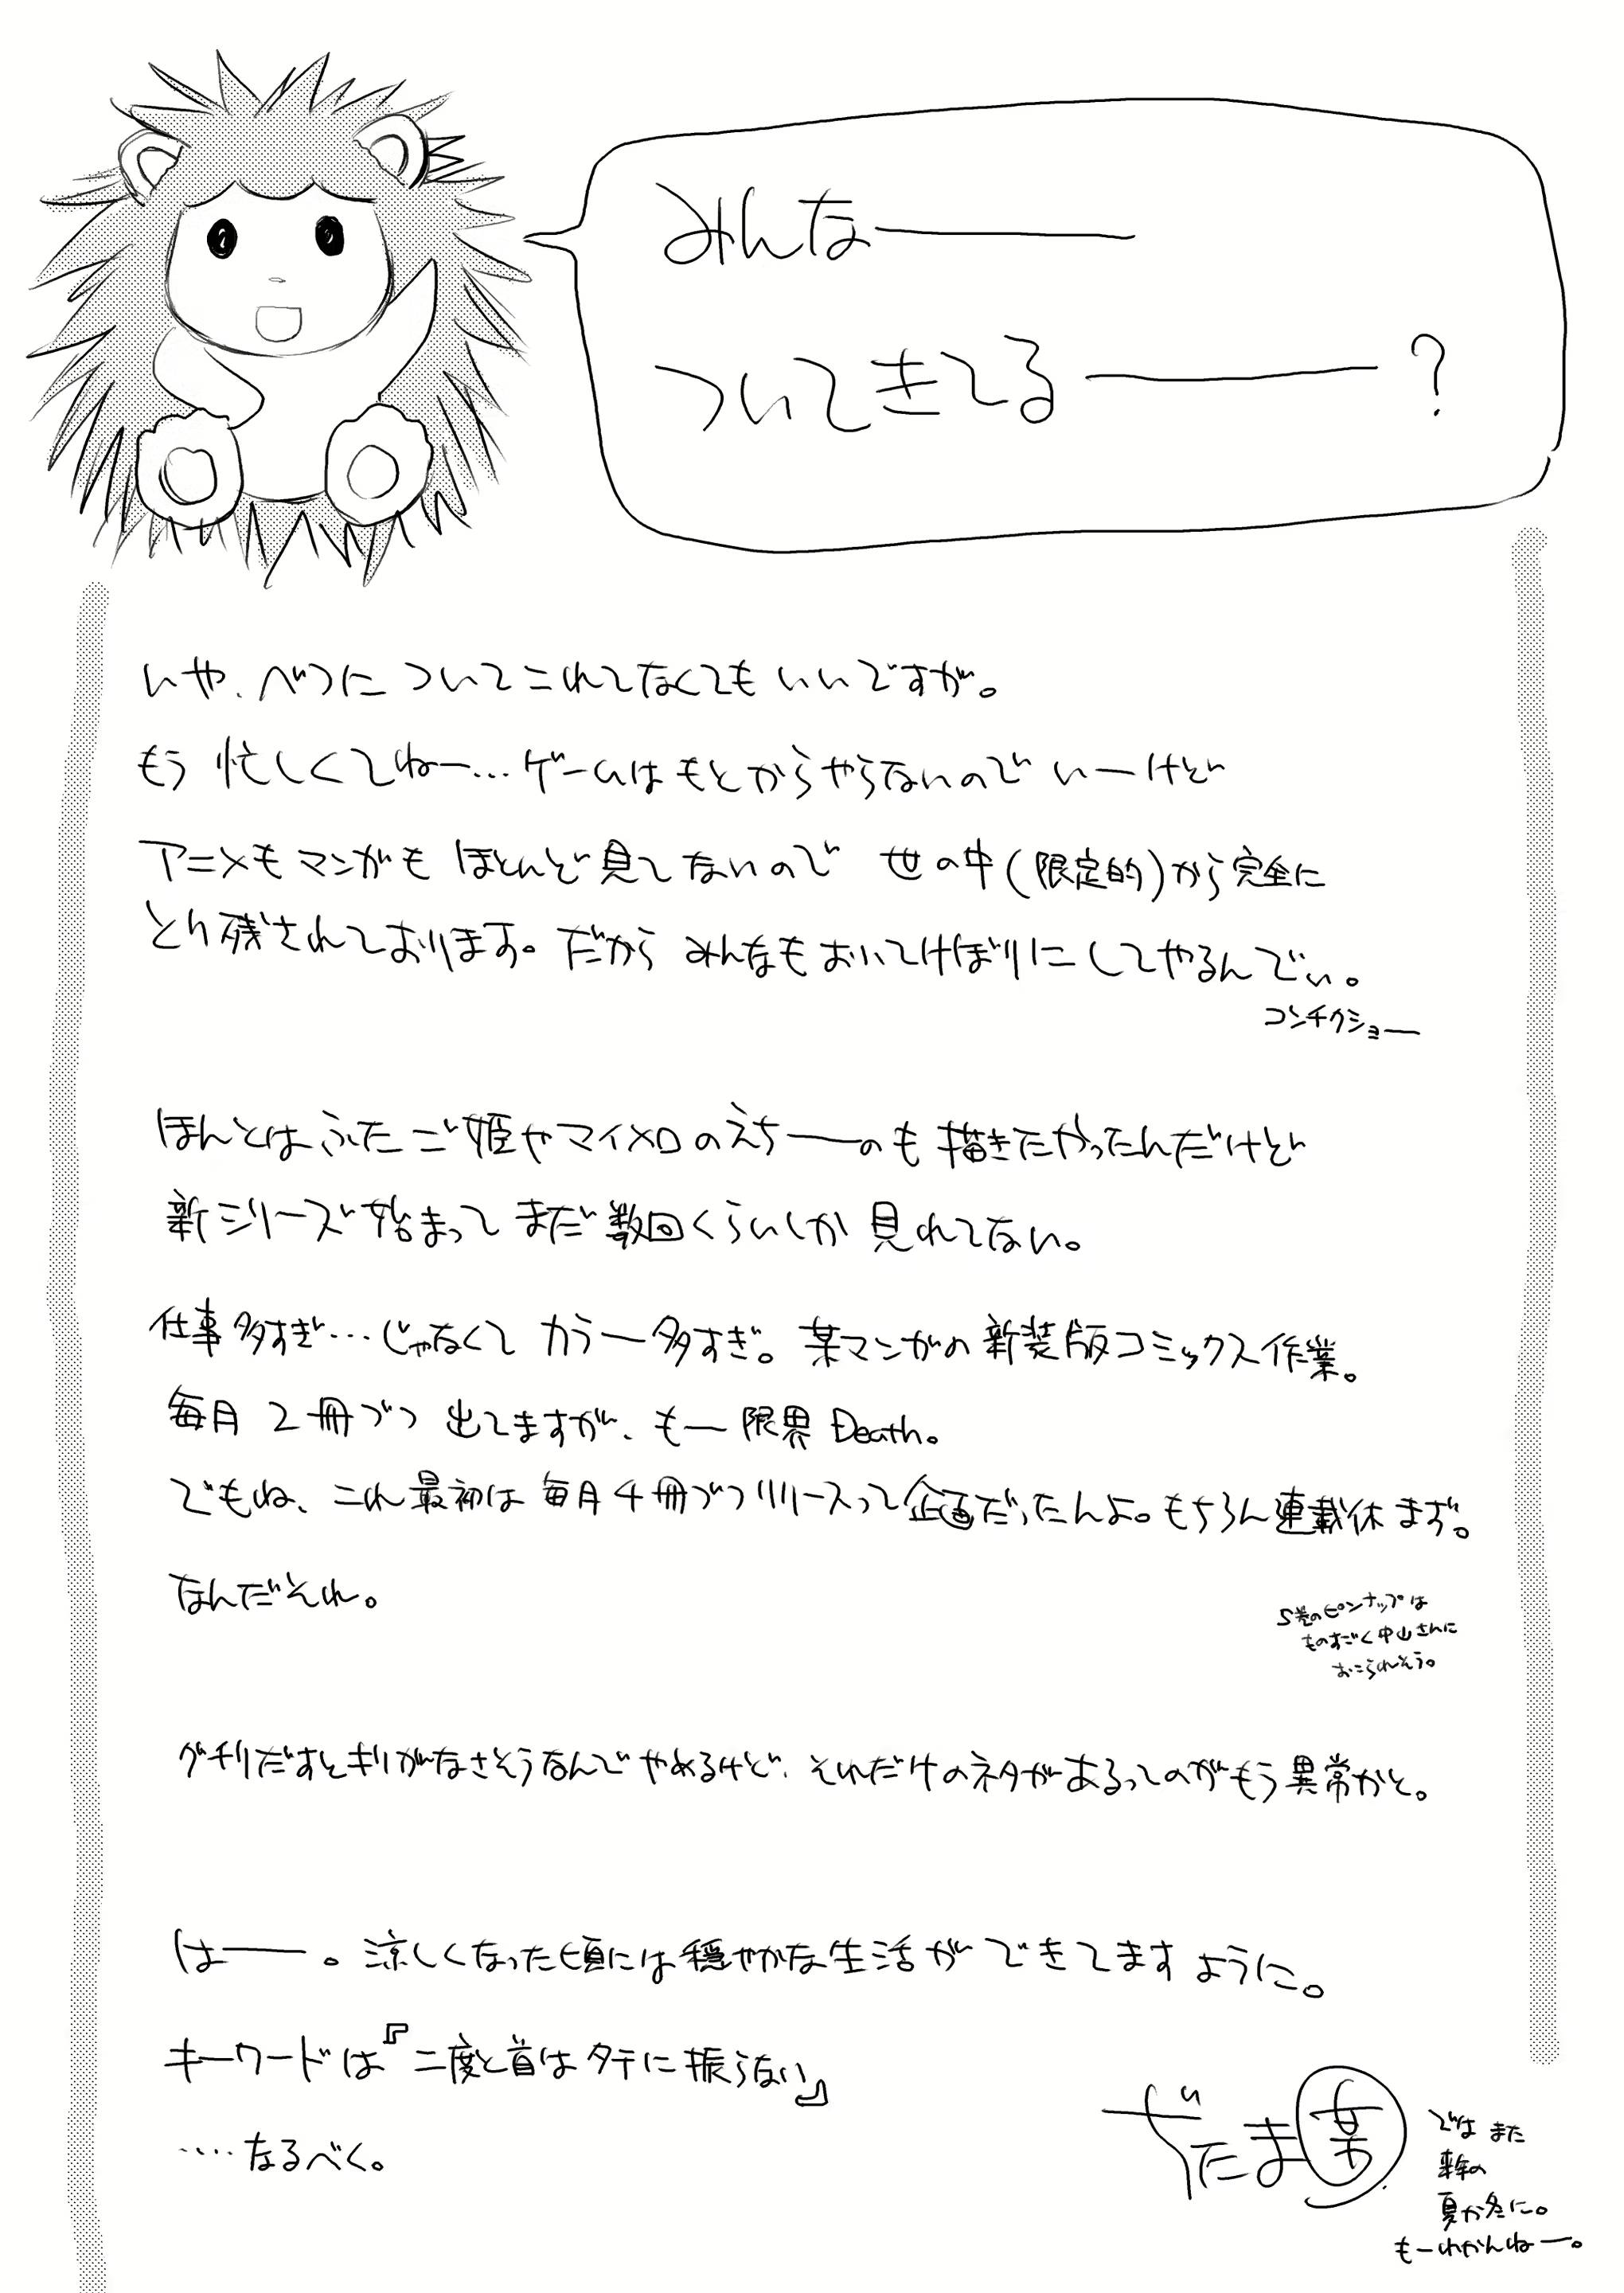 みんなーーー
ついてきてるーーー?
いや、べつに ついてこれてなくても いいですが。
もう 忙しくてねー…ゲームはもとからやらないので いーけど
アニメもマンガも ほとんど見てないので 世の中(限定的)から完全に
とり残されております。だから みんなもおいてけぼりにしてやるんでぃ。
コンチクショー
ほんとはふたご姫やマイメロのえちーのも描きたかったんだけど
新シリーズ始まって まだ数回くらいしか 見れてない。
仕事多すぎ…じゃなくて カラー多すぎ。某マンガの新装版コミックス作業。
毎月 2冊づつ 出てますが、もー限界Death。
でもね、これ最初は毎月4冊づつリリースって企画だったんよ。もちろん連載休まず。
なんだそれ。
5巻のピンナップは
ものすごく中山さんに
おこられそう。
グチりだすとキリがなさそうなんでやめるけど、それだけのネタがあるってのがもう異常かと。
はーー。涼しくなった頃には穏やかな生活ができてますように。
キーワードは『二度と首はタテに振らない』
……なるべく。
ぜたま某
では また
来年の
夏か冬に。
もーわかんねー。